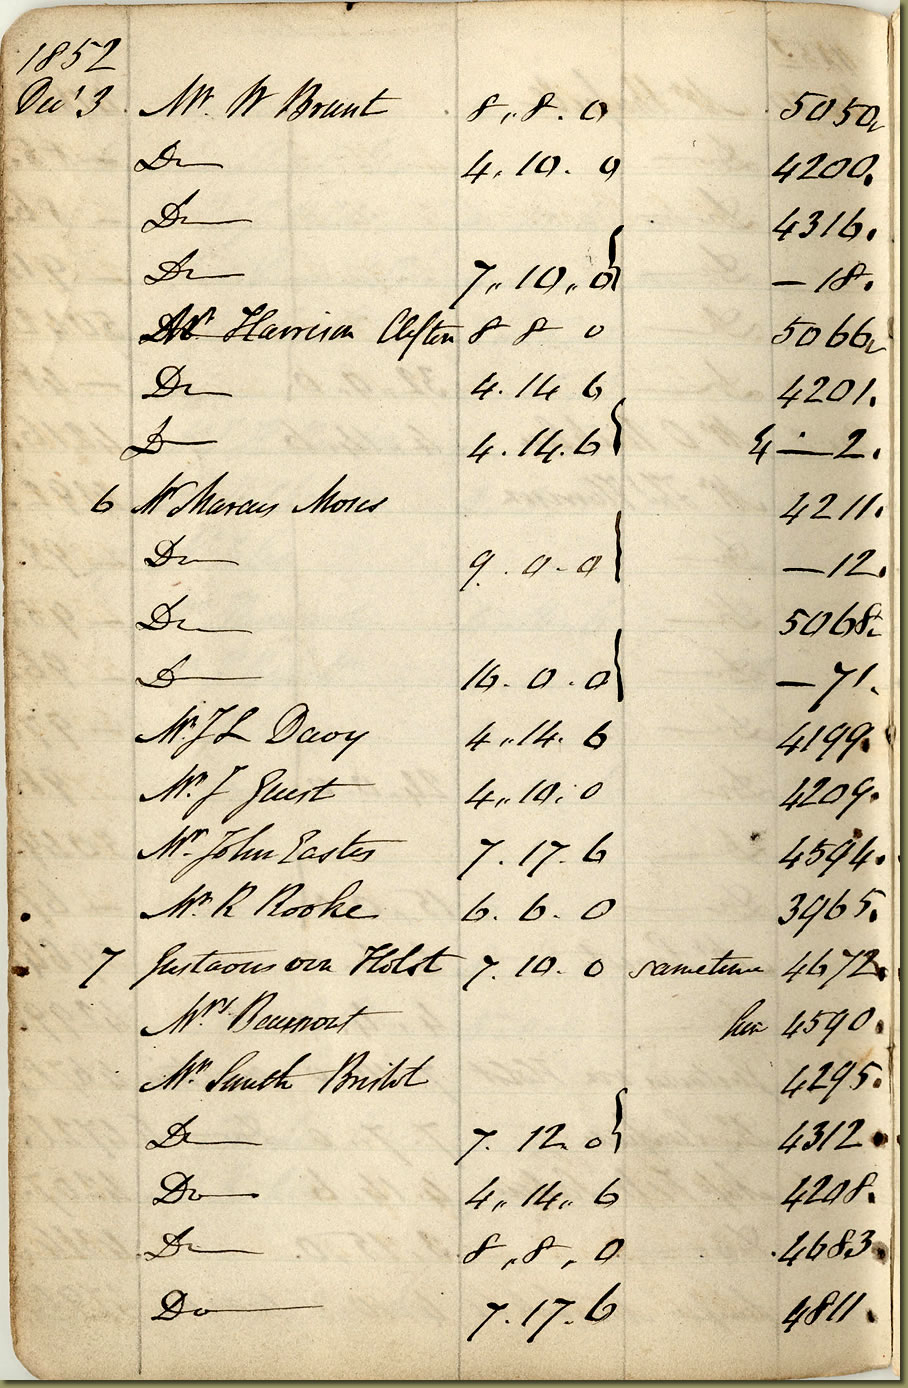 1852
Decr 3 Mr. W Brunt 8,,8. 0 5050.
Do 4. 10. 0 4200.
Do 4316.
Do 7,, 10,, 0 } — 18.
Mr. Harrison Clifton 8 8 0 5066.
Do 4. 14 6 4201.
Do 4. 14. 6 } — 2.
6 Mr Marcus Moses 4211.
Do 9. 0 - 0 } — 12.
Do 5068.
Do 16. 0. 0 } — 71.
Mr. J L Davy 4,,14. 6 4199.
Mr. J Guest 4,, 10. 0 4209.
Mr. John Easter 7. 17. 6 4594.
Mr. R Rooke 6. 6. 0 3965.
7 Gustavus von Holst 7. 10. 0 sametime 4672.
Mrs. Beaumont 4590.
Mr. Smith Bristol 4295.
Do 7. 12. 0 } 4312
Do 4,, 14,, 6 4208.
Do 8,, 8,, 0 4683
Do 7. 17. 6 4811.